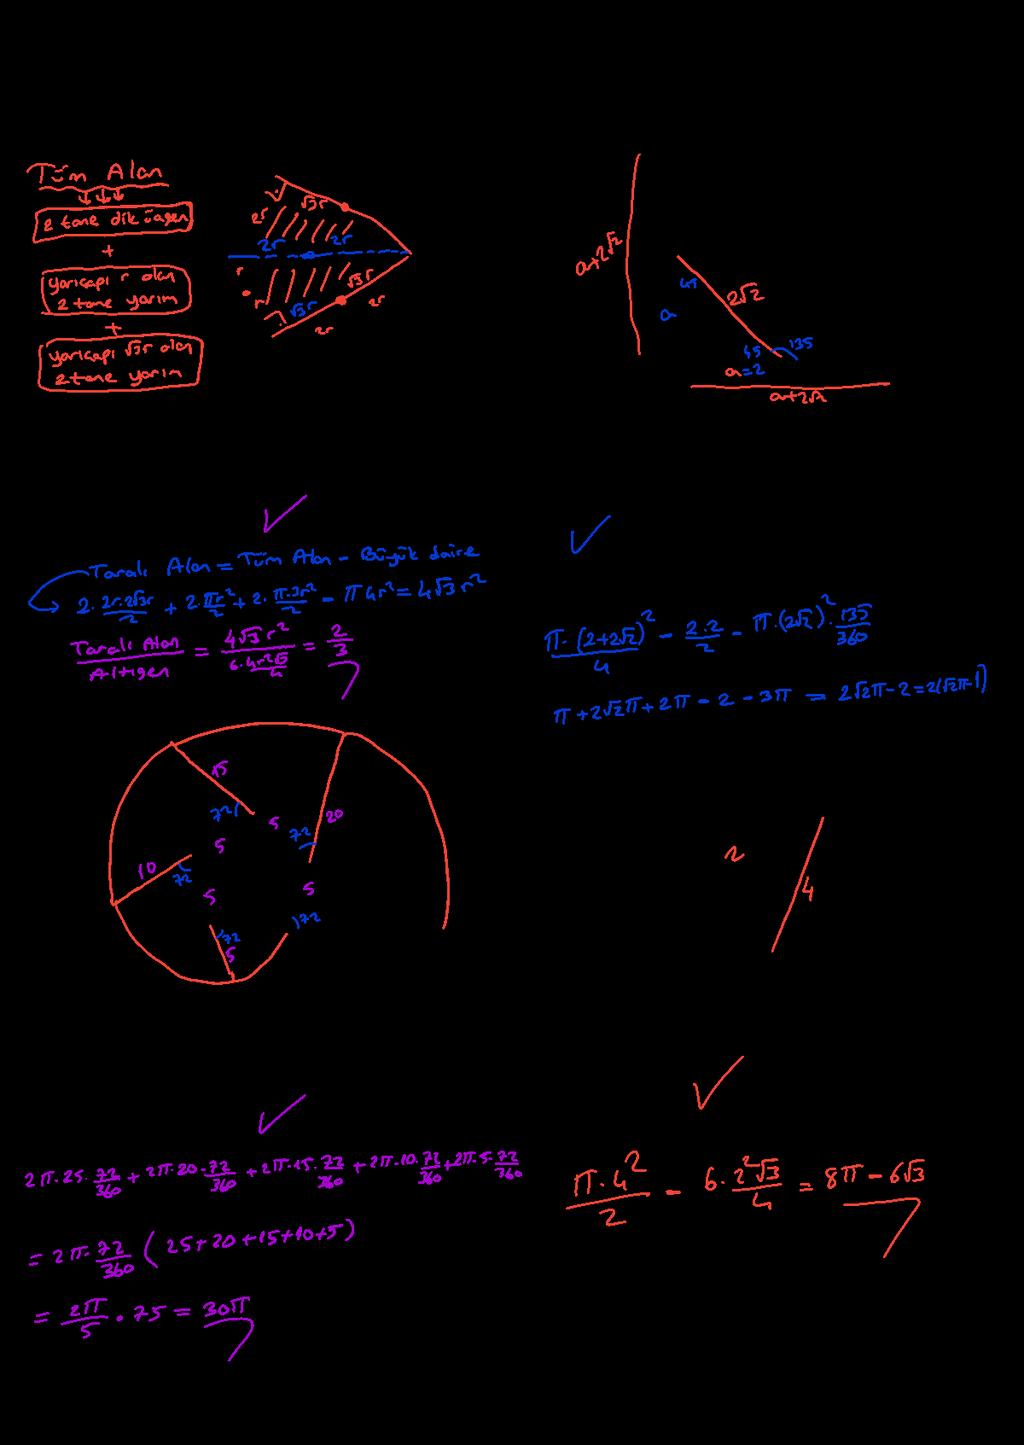 Tüm Alan
2 tane dik üçgen
+
yarıçapı r olan
2 tane yarım
+
yarıçapı √3r olan
2 tane yarım
√3r
2r
2r
2r
r
r
√3r
√3r
2r
2r
a+2√2
45
2√2
a
45
135
a=2
a+2√2
Taralı Alan = Tüm Alan - Büyük daire
2. 2r.2√3r/2 + 2.πr²/2 + 2. π.3r²/2 - π4r² = 4√3r²
Taralı Alan/Altıgen = 4√3r²/6.4r²√3/4 = 2/3
π.(2+2√2)²/4 - 2.2/2 - π.(2√2)².135/360
π+2√2π+2π-2-3π = 2√2π-2=2(√2π-1)
15
72
5
72
20
5
10
72
5
5
72
5
72
2
4
2π.25.72/360 + 2π.20.72/360 + 2π.15.72/360 + 2π.10.72/360 + 2π.5.72/360
= 2π.72/360 (25+20+15+10+5)
= 2π/5 . 75 = 30π
π.4²/2 - 6.2²√3/4 = 8π - 6√3